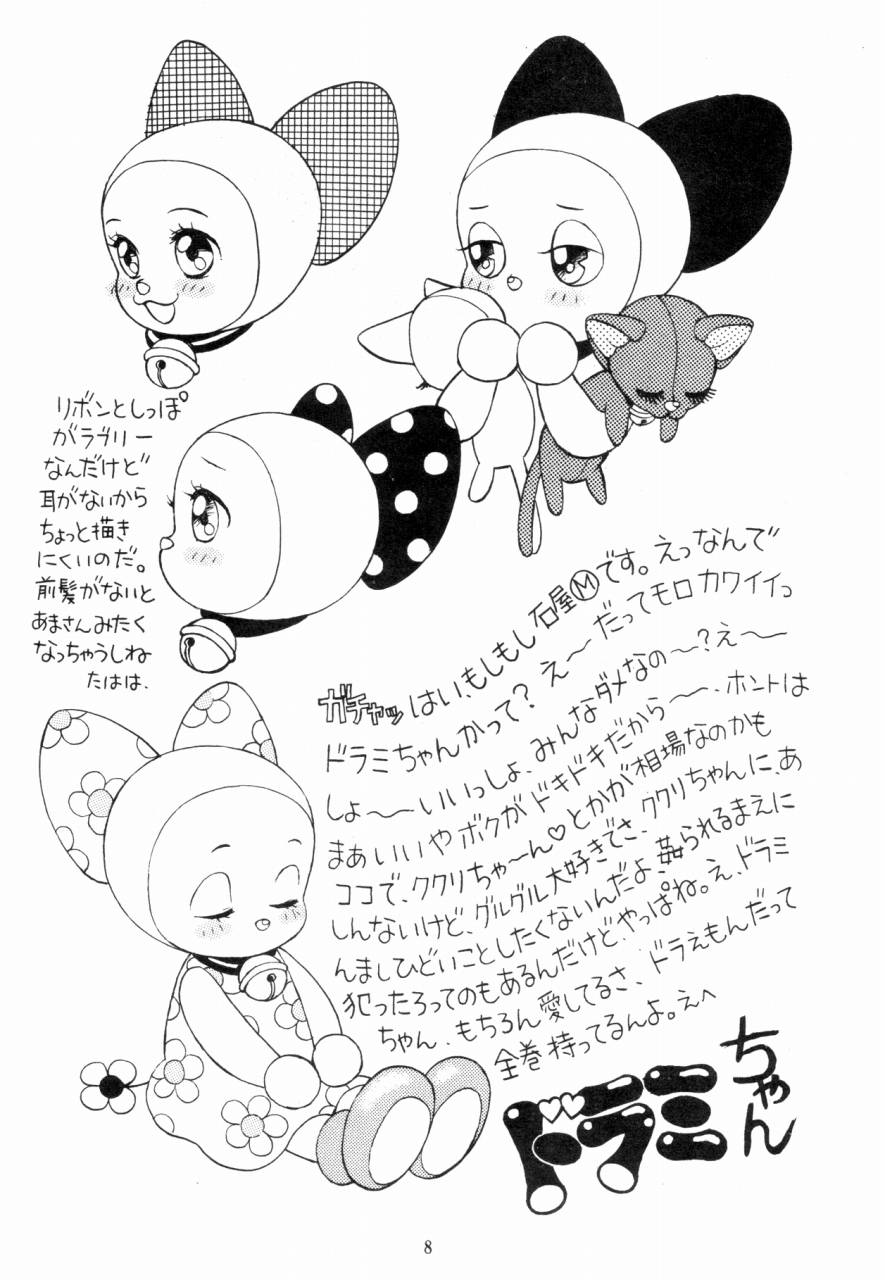 リボンとしっぽ
がラブリー
なんだけど
耳がないから
ちょっと描き
にくいのだ。
前髪がないと
あまさんみたく
なっちゃうしね
たはは、
ガチャッ はい、もしもし 石屋Ⓜです。えっなんで
ドラミちゃんかって? え〜 だってモロカワイイっ
しょ〜〜いいっしょ、みんなダメなの〜?え〜〜
まあいいやボクがドキドキだから〜〜、ホントは
ココで、ククリちゃ〜ん♡とかが相場なのかも
しんないけど、グルグル大好きでさ、ククリちゃんに、あ
んましひどいことしたくないんだよ、姦られるまえに
犯ったろってのもあるんだけど、やっぱね。え、ドラミ
ちゃん、もちろん愛してるさ、ドラえもんだって
全巻持ってるんよ。えへ
ドラミちゃん
8